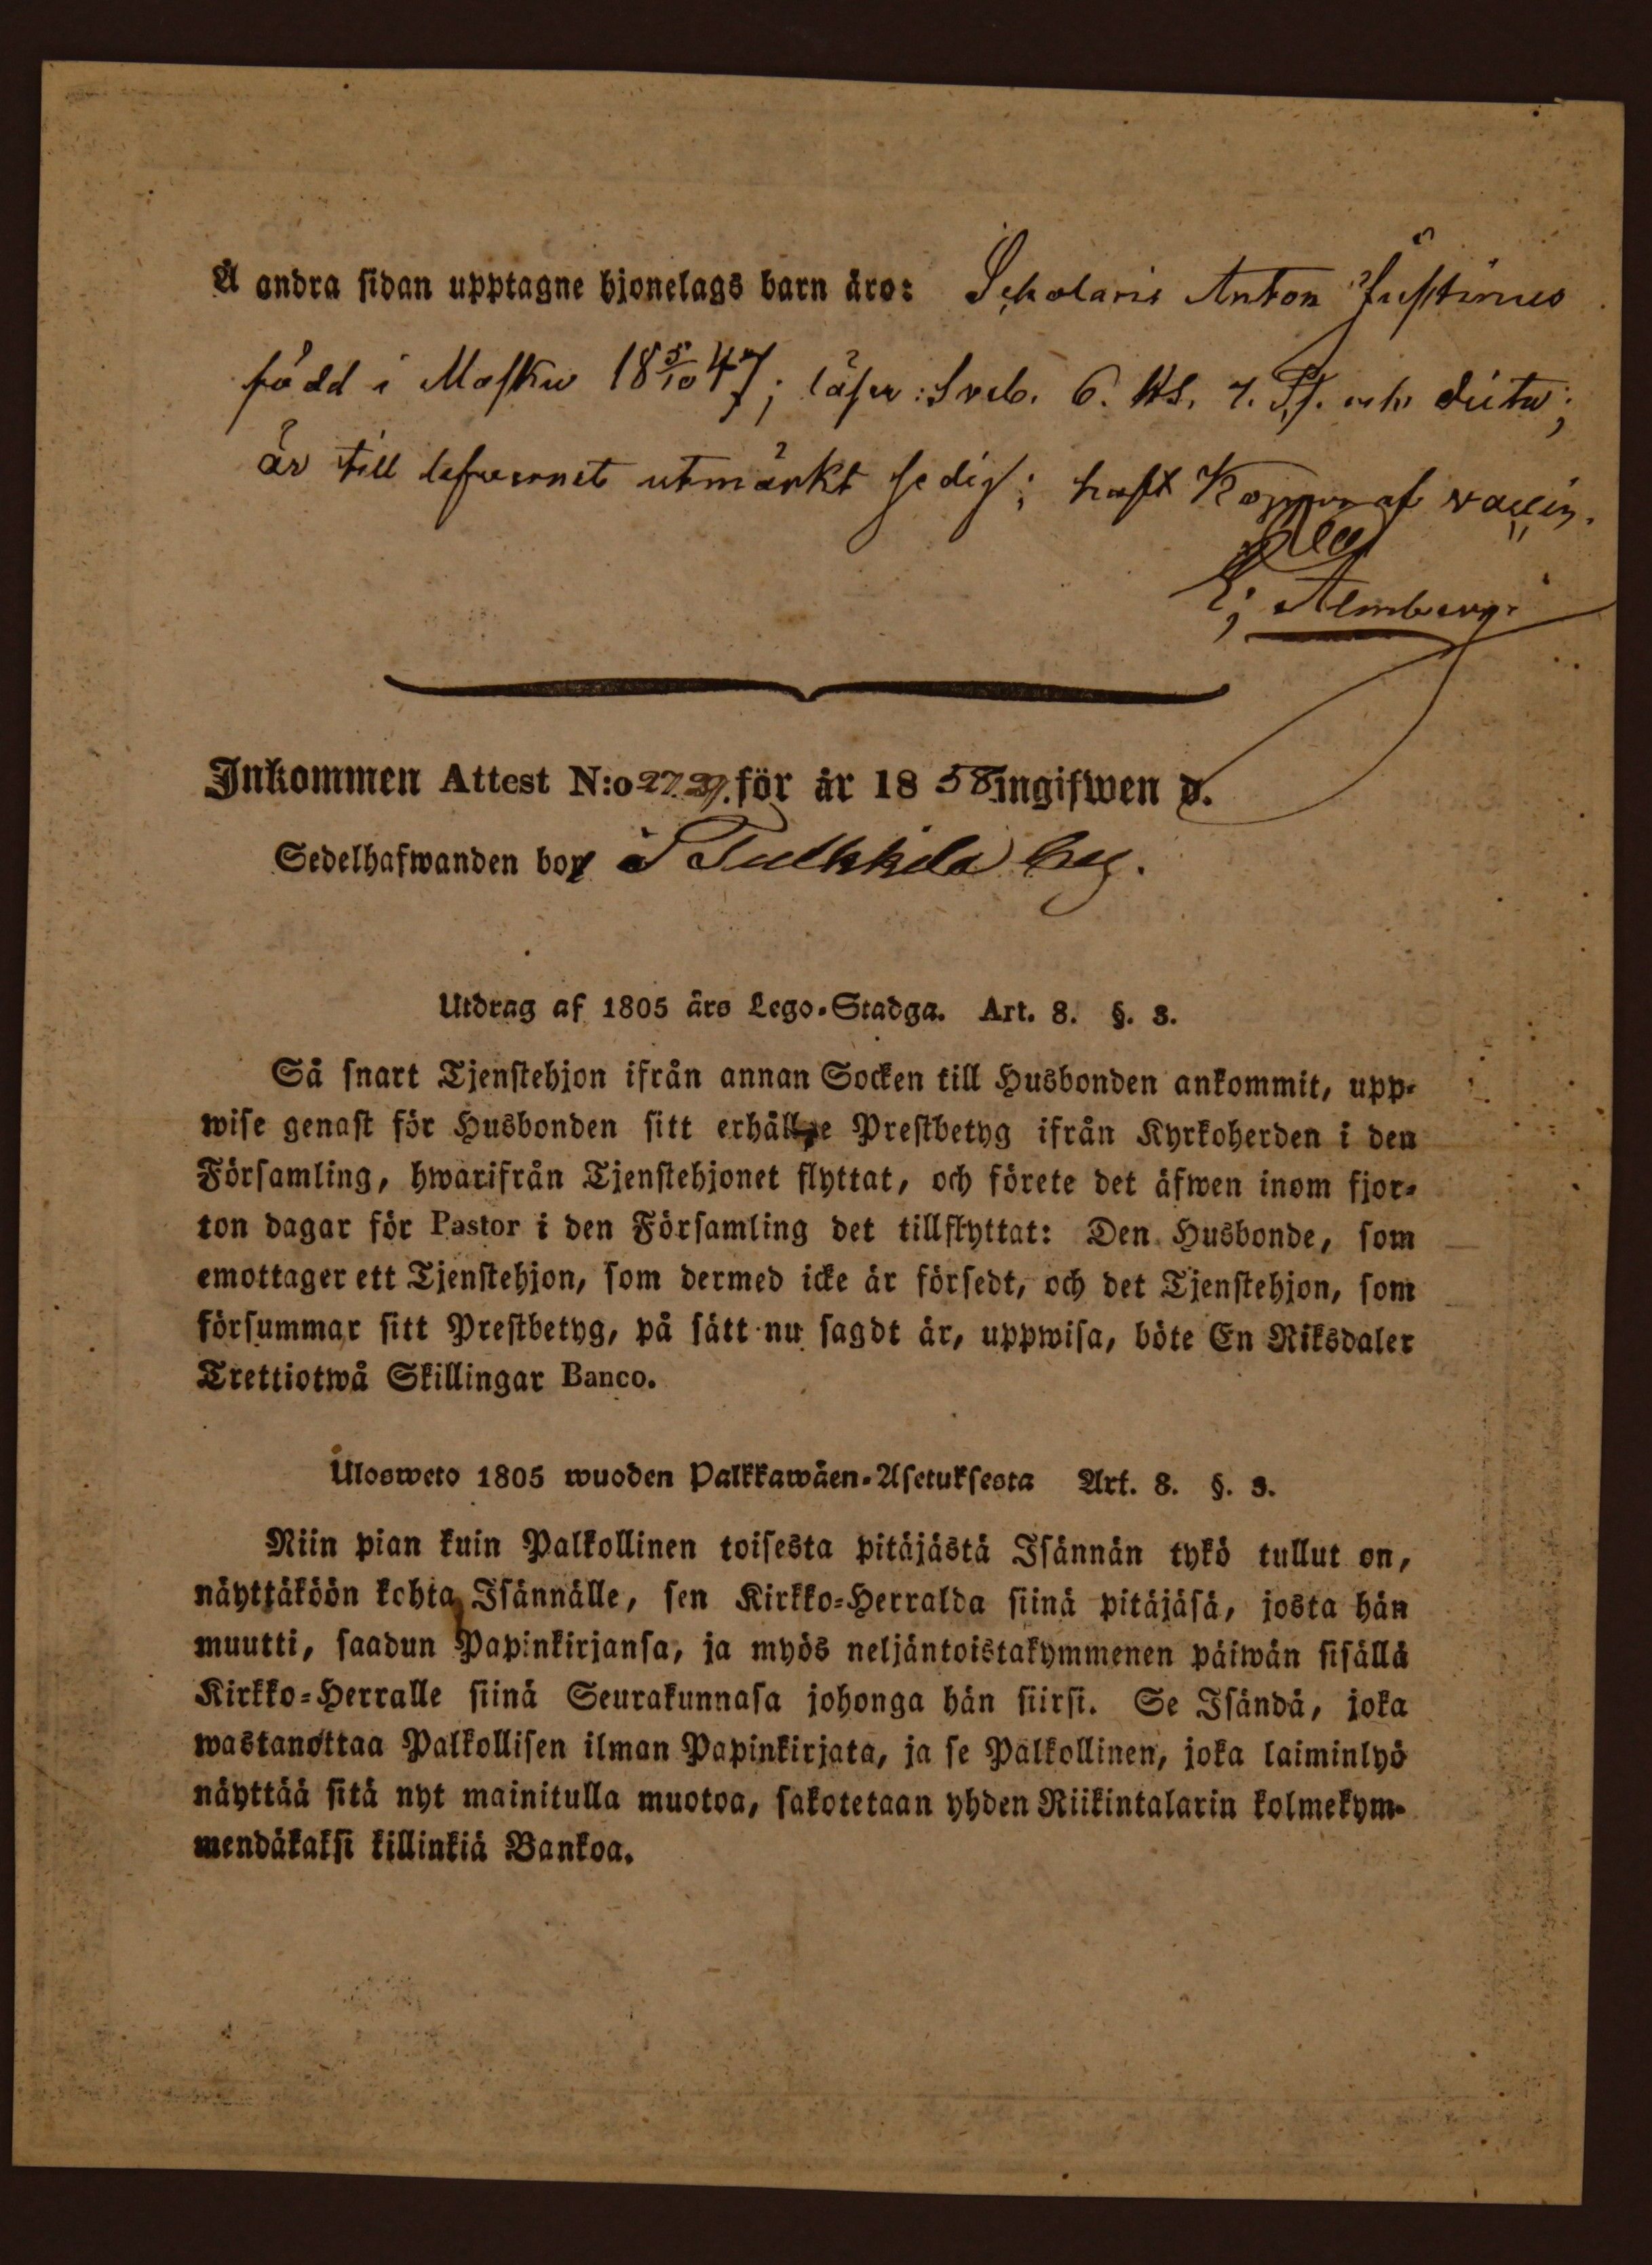 Å andra sidan upptagne hjonelags barn äro: Scholaris Anton Justinus
född i Masku 18 5/10 47; läser: Sveb. 6. HS. 7. St. och dicta;
är till lefvernet utmärkt sedig; haft Koppor af vaccin.
E; Almberg.
Inkommen Attest N:o 27.29. för år 1858 ingifwen d.
Sedelhafwanden bor i Tulkkila by.
Utdrag af 1805 års Lego-Stadga. Art. 8. §. 3.
Så snart Tjenstehjon ifrån annan Socken till Husbonden ankommit, upp-
wise genast för Husbonden sitt erhållne Prestbetyg ifrån Kyrkoherden i den
Församling, hwarifrån Tjenstehjonet flyttat, och förete det äfwen inom fjor-
ton dagar för Pastor i den Församling det tillflyttat: Den Husbonde, som
emottager ett Tjenstehjon, som dermed icke är försedt, och det Tjenstehjon, som
försummar sitt Prestbetyg, på sätt nu sagdt är, uppwisa, böte En Riksdaler
Trettiotwå Skillingar Banco.
Ulosweto 1805 wuoden Palkkawäen-Asetuksesta Art. 8. §. 3.
Niin pian kuin Palkollinen toisesta pitäjästä Isännän tykö tullut on,
näyttäköön kohta Isännälle, sen Kirkko-Herralda siinä pitäjäsä, josta hän
muutti, saadun Papinkirjansa, ja myös neljäntoistakymmenen päiwän sisällä
Kirkko-Herralle siinä Seurakunnasa johonga hän siirsi. Se Isändä, joka
wastanottaa Palkollisen ilman Papinkirjata, ja se Palkollinen, joka laiminlyö
näyttää sitä nyt mainitulla muotoa, sakotetaan yhden Riikintalarin kolmekym-
mendäkaksi killinkiä Bankoa.